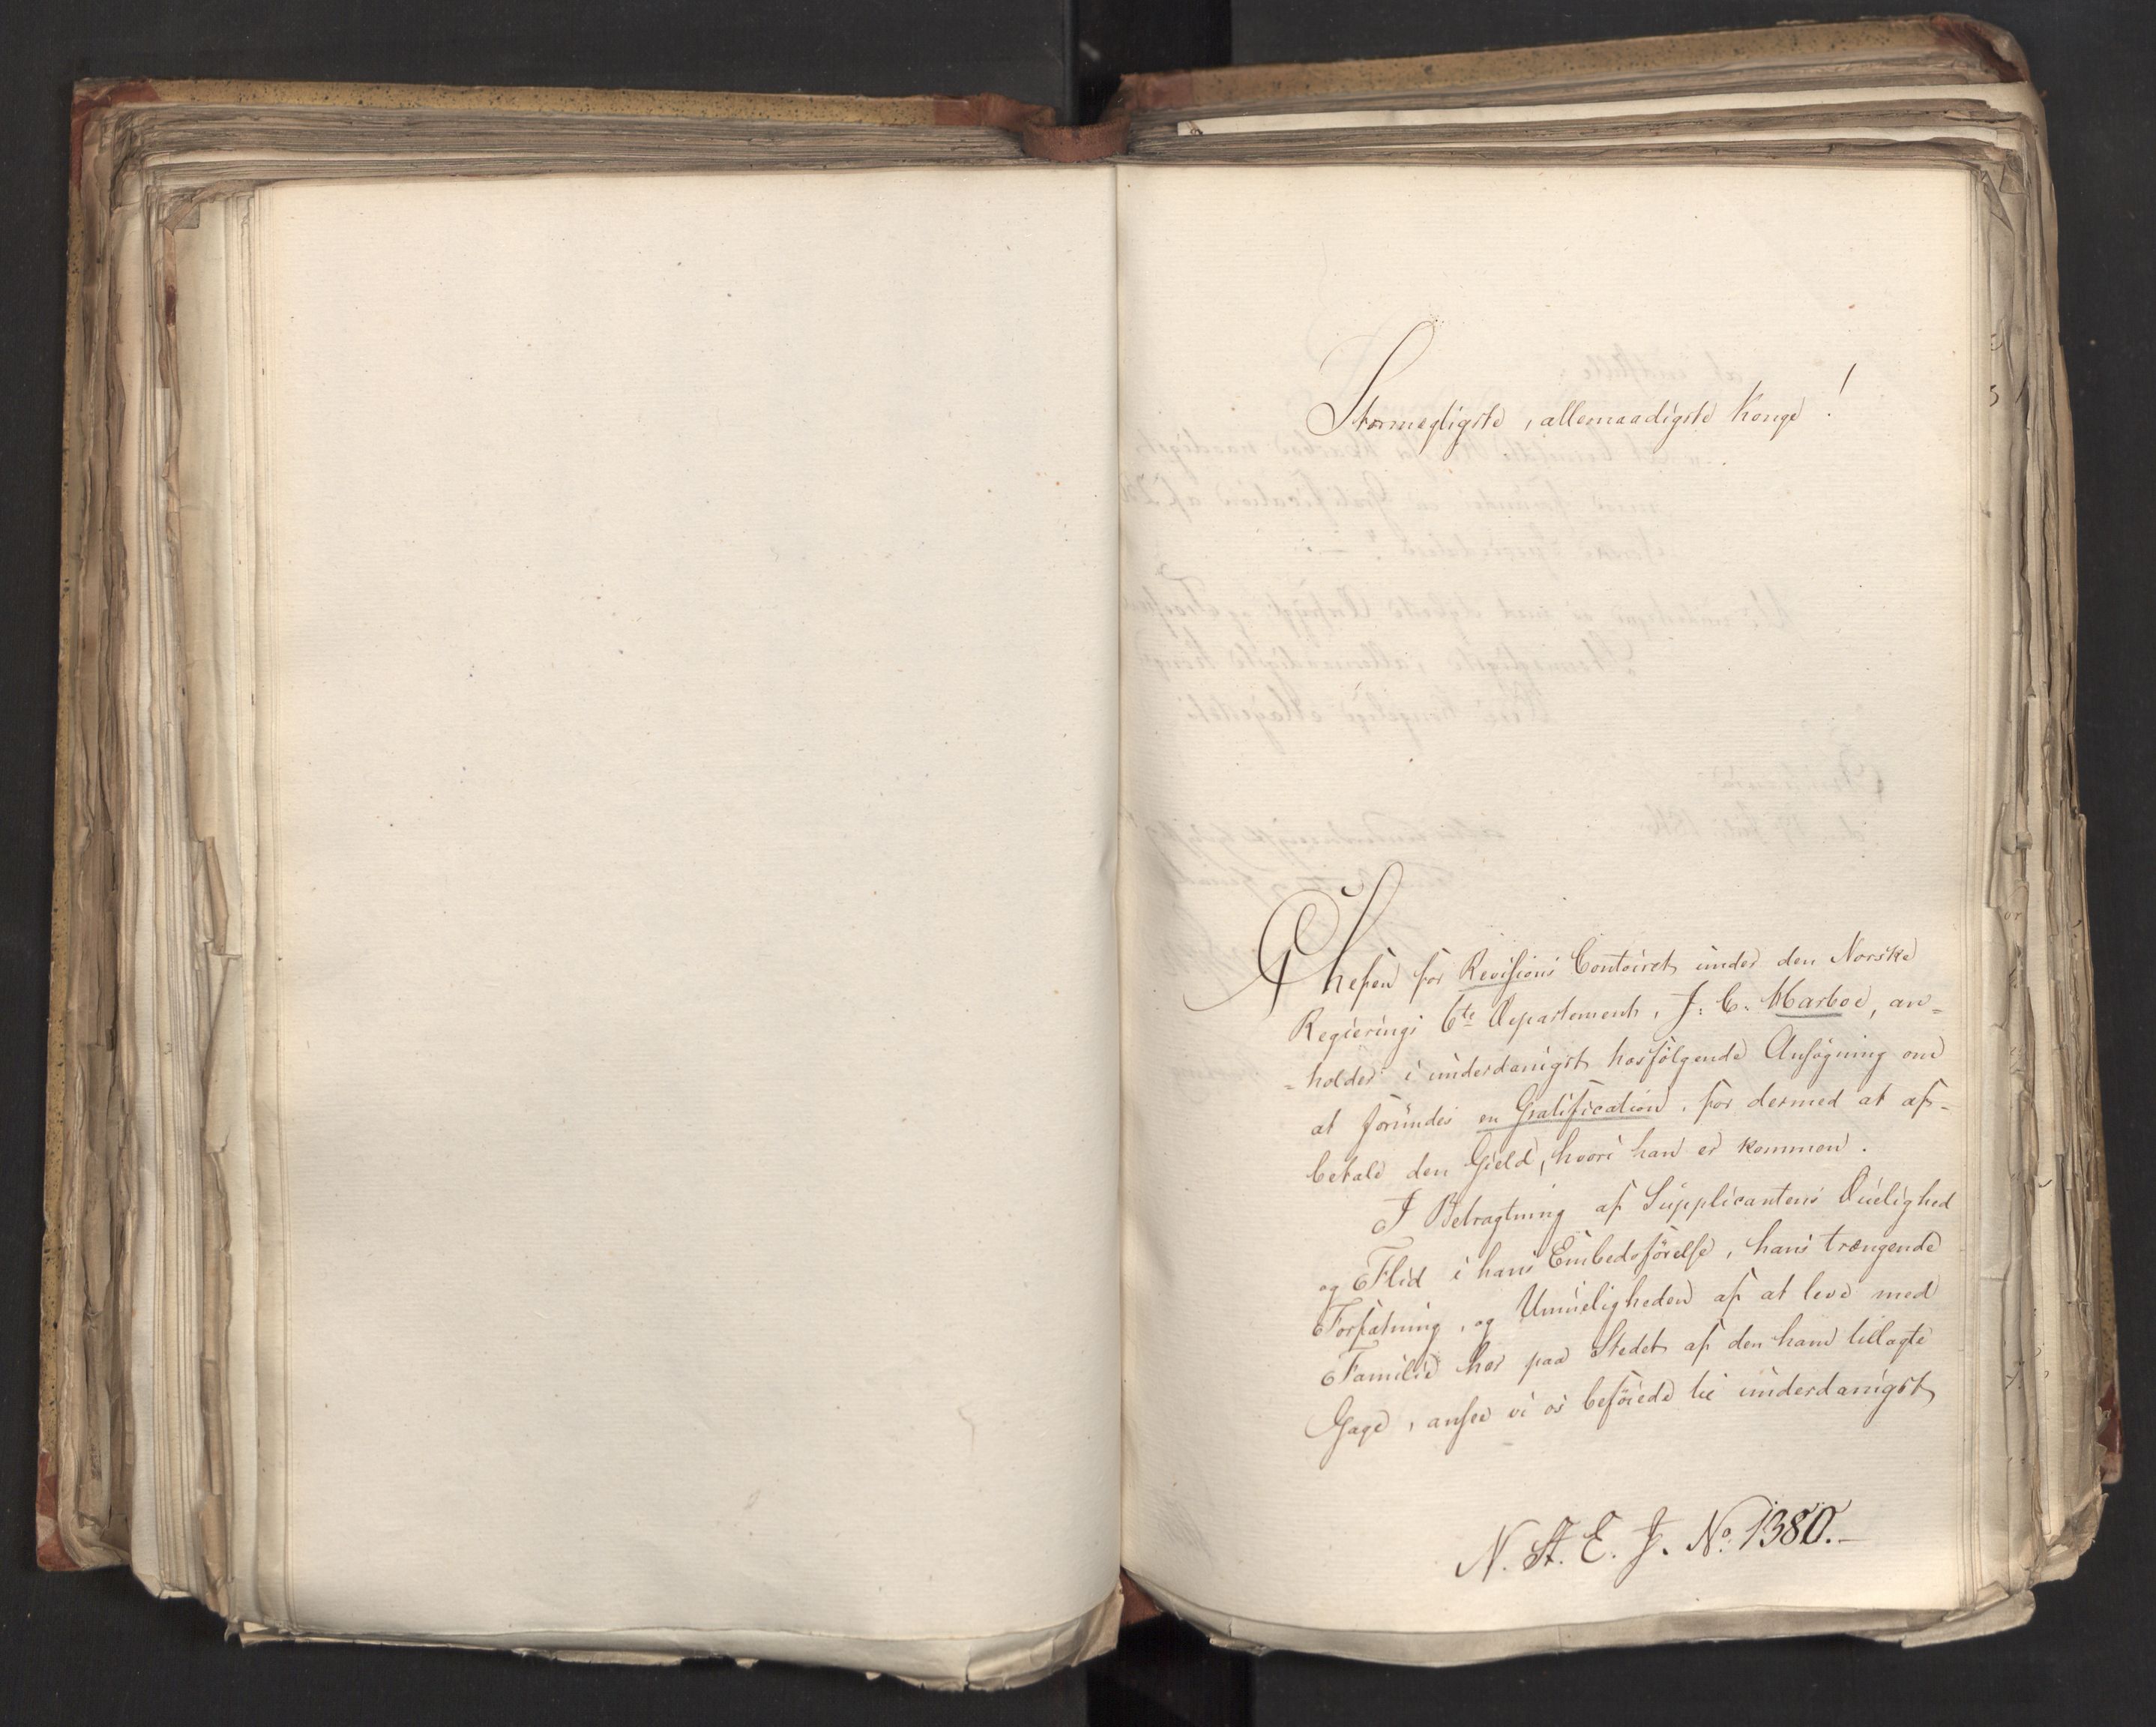 Stormegtigste, allernaadigste Konge!
Chefen for Revisions Contoiret under den Norske
Regierings 6te Departement, J: C. Marboe, an=
=holder i underdanigst hosfølgende Ansøgning om
at forundes en Gratification, for dermed at af=
betale den Gield, hvori han er kommen.
I Betragtning af Supplicantens Duelighed
og Flid i hans Embedsførelse, hans trængende
Forfatning, og Umueligheden af at leve med
Familie her paa Stedet af den ham tillagte
Gage, ansee vi os beføiede til underdanigst
N. St. E. J. No. 1380.